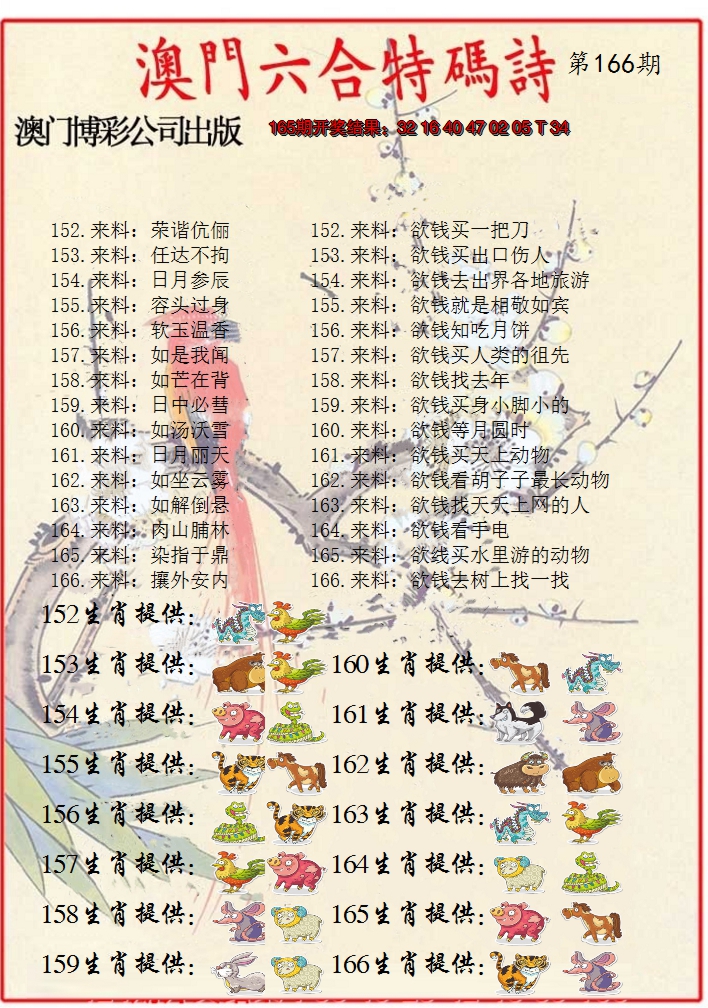 澳門六合特碼詩 第166期
澳门博彩公司出版 165期开奖结果：32 16 40 47 02 05 T 34
152.来料：荣谐伉俪 152.来料：欲钱买一把刀
153.来料：任达不拘 153.来料：欲钱买出口伤人
154.来料：日月参辰 154.来料：欲钱去出界各地旅游
155.来料：容头过身 155.来料：欲钱就是相敬如宾
156.来料：软玉温香 156.来料：欲钱知吃月饼
157.来料：如是我闻 157.来料：欲钱买人类的祖先
158.来料：如芒在背 158.来料：欲钱找去年
159.来料：日中必彗 159.来料：欲钱买身小脚小的
160.来料：如汤沃雪 160.来料：欲钱等月圆时
161.来料：日月丽天 161.来料：欲钱买天上动物
162.来料：如坐云雾 162.来料：欲钱看胡子子最长动物
163.来料：如解倒悬 163.来料：欲钱找天天上网的人
164.来料：肉山脯林 164.来料：欲钱看手电
165.来料：染指于鼎 165.来料：欲线买水里游的动物
166.来料：攘外安内 166.来料：欲钱去树上找一找
152生肖提供：
153生肖提供： 160生肖提供：
154生肖提供： 161生肖提供：
155生肖提供： 162生肖提供：
156生肖提供： 163生肖提供：
157生肖提供： 164生肖提供：
158生肖提供： 165生肖提供：
159生肖提供： 166生肖提供：